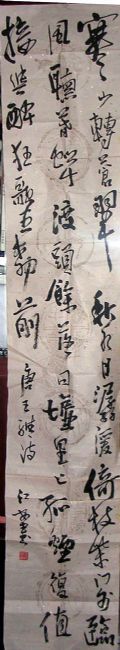 寒山轉蒼翠秋水日潺湲倚杖柴門外臨
風聽暮蟬渡頭餘落日墟里上孤煙復值
接輿醉狂歌五柳前
唐王維詩